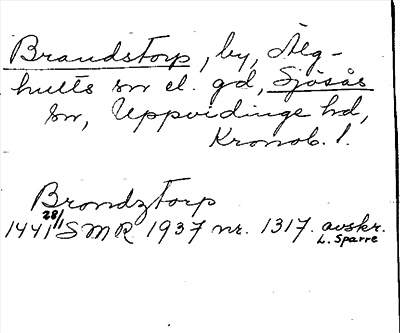 Brandstorp, by, Älg-
hults sn el. gd, Sjösås
sn, Uppvidinge hd,
Kronob. l.
Brondztorp
1441 28/1 SMR 1937 nr. 1317. avskr.
L. Sparre